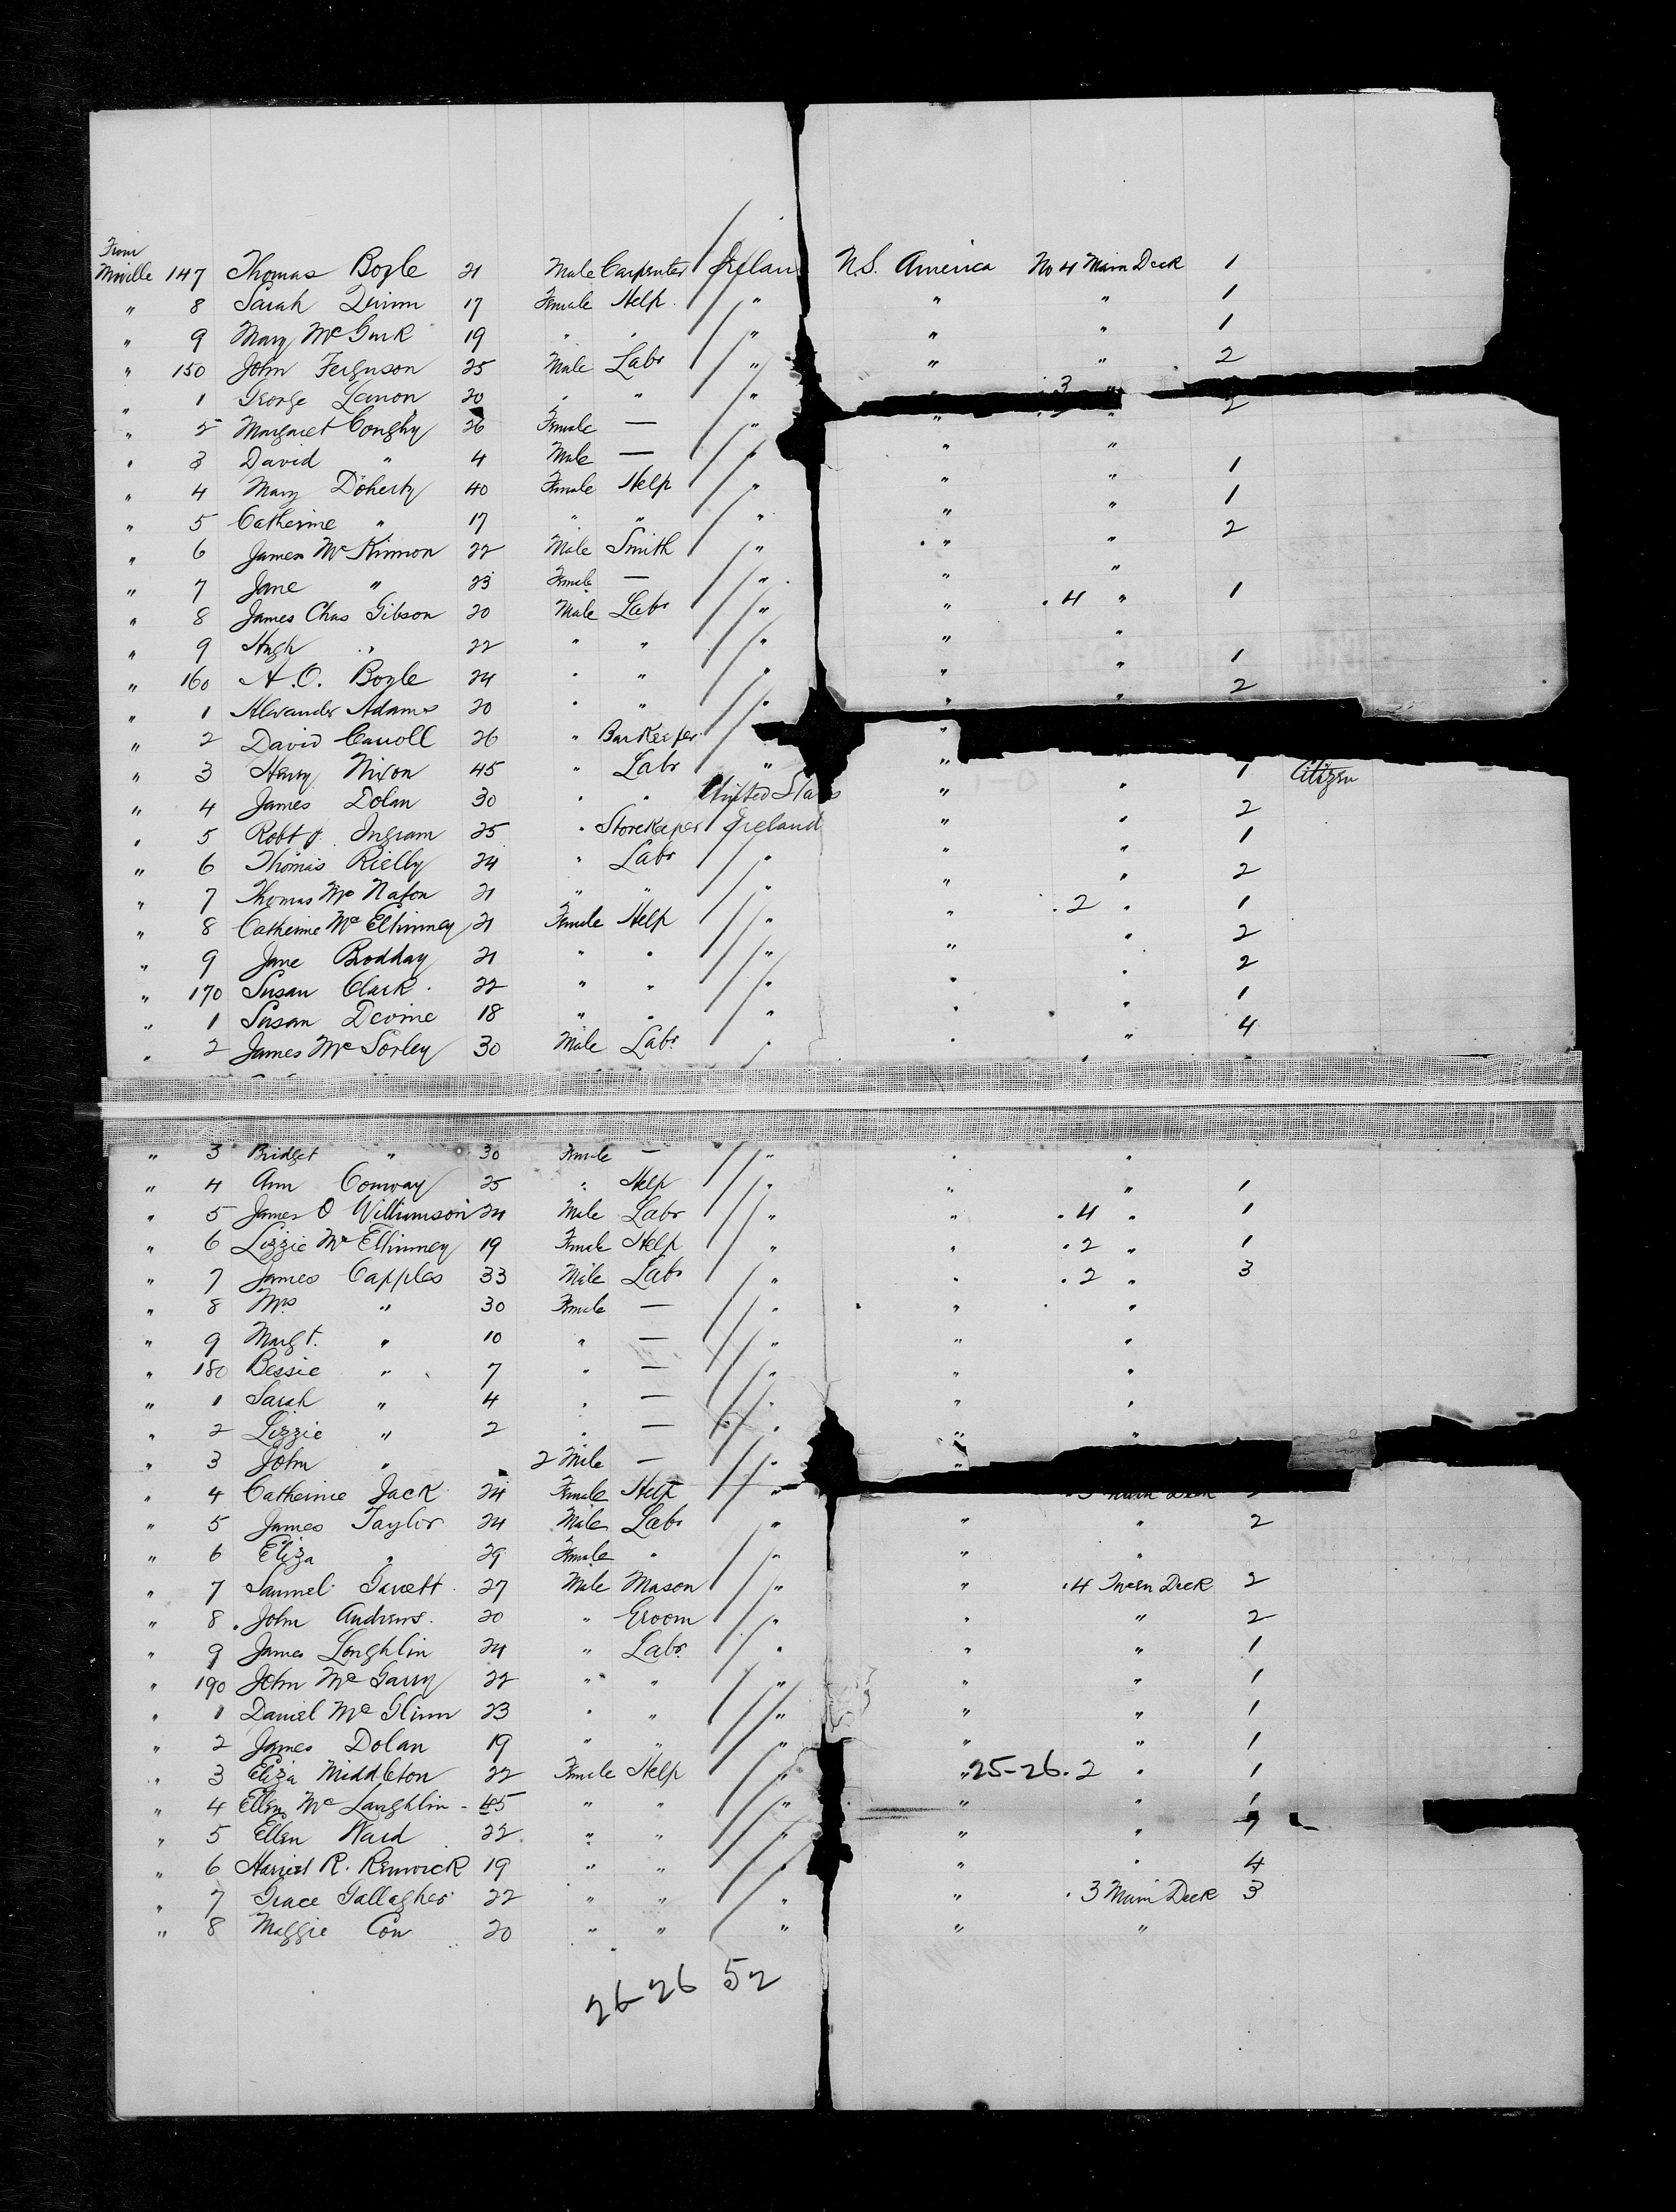 From
Mville 147 Thomas Boyle 21 Male Carpenter Ireland U.S. America No 4 Main Deck 1
" 8 Sarah Quinn 17 Female Help " " " 1
" 9 Mary McGurk 19 " " " " " 1
" 150 John Ferguson 25 Male Labr " " " 2
" 1 George 20 " " " " . 3 "
" 2 Margaret Conghy 26 Female — " " " 2
" 3 David " 4 Male — " " "
" 4 Mary Doherty 40 Female Help " " " 1
" 5 Catherine " 17 " " " " " 1
" 6 James McKinnon 22 Male Smith " " " 2
" 7 Jane " 23 Female — " " "
" 8 James Chas Gibson 20 Male Labr " " . 4 " 1
" 9 Hugh " 22 " " " " "
" 160 A. O. Boyle 24 " " " " " 1
" 1 Alexander Adams 20 " " " " " 2
" 2 David Carroll 26 " Barkeeper " "
" 3 Henry Nixon 45 " Labr " "
" 4 James Dolan 30 " " United States " " 1 Citizen
" 5 Robt J. Ingram 25 " Storekeeper Ireland " " 2
" 6 Thomas Rielly 24 " Labr " " " 1
" 7 Thomas Mc 21 " " " " " 2
" 8 Catherine McElhinney 21 Female Help " " . 2 " 1
" 9 Jane Brodday 21 " " " " " 2
" 170 Susan Clark 22 " " " " " 2
" 1 Susan Devine 18 " " " " " 1
" 2 James McSorley 30 Male Labr " " " 4
" 3 Bridget " 30 Female — " " "
" 4 Ann Conway 25 " Help " " " 1
" 5 James O Williamson 24 Male Labr " " . 4 " 1
" 6 Lizzie McElhinney 19 Female Help " " . 2 " 1
" 7 James Capples 33 Male Labr " " . 2 " 3
" 8 Mrs " 30 Female — " " "
" 9 Margt. " 10 " — " " "
" 180 Bessie " 7 " — " " "
" 1 Sarah " 4 " — " " "
" 2 Lizzie " 2 " — " " "
" 3 John " 2 Male — " "
" 4 Catherine Jack 24 Female Help "
" 5 James Taylor 24 Male Labr " " " 2
" 6 Eliza " 29 Female " " " "
" 7 Samuel Garrett 27 Male Mason " " . 4 Main Deck 2
" 8 John Andrews 20 " Groom " " " 2
" 9 James Loughlin 24 " Labr " " " 1
" 190 John McGarry 22 " " " " " 1
" 1 Daniel McGlinn 23 " " " " " 1
" 2 James Dolan 19 " " " " " 1
" 3 Eliza Middleton 22 Female Help " " 25-26 . 2 " 1
" 4 Ellen McLaughlin - 45 " " " " " 1
" 5 Ellen Ward 22 " " " " "
" 6 Harriet R. Renwick 19 " " " " " 4
" 7 Grace Gallagher 22 " " " " . 3 Main Deck 3
" 8 Maggie 20 " " " " "
26-26 52